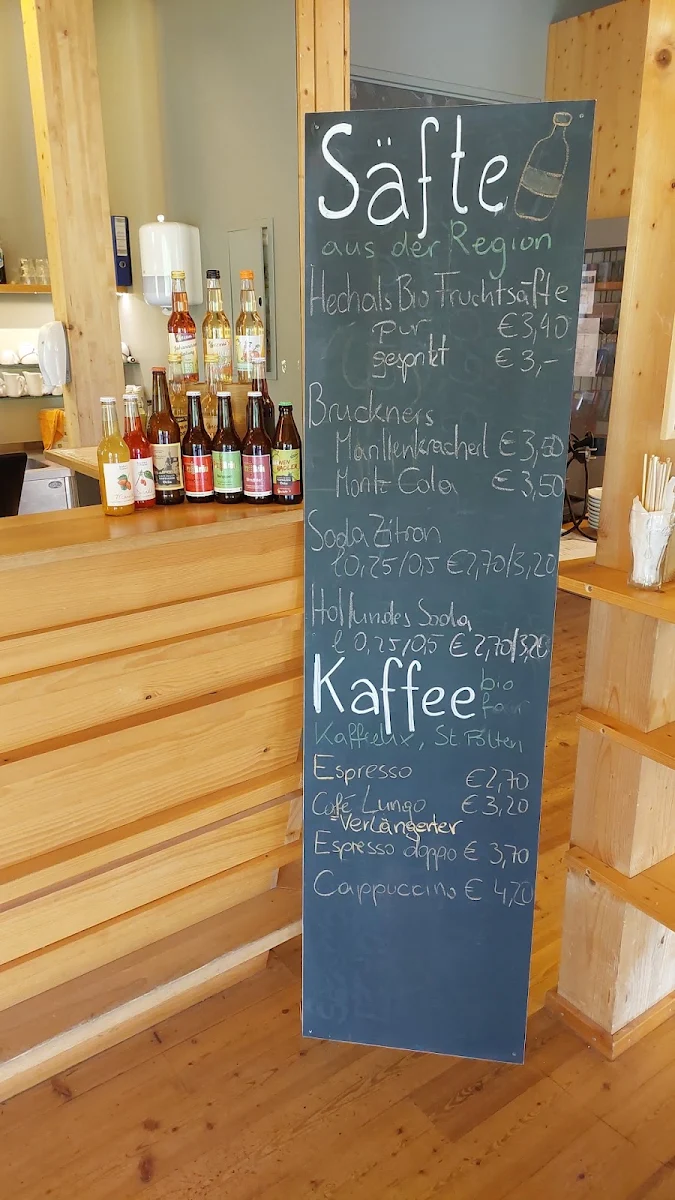 Säfte
aus der Region
Hechals Bio Fruchtsäfte
pur €3,40
gespritzt €3,-
Bruckners
Marillenkracherl €3,50
Montz Cola €3,50
Soda Zitron
l 0,25/0,5 €2,70/3,20
Hollunder Soda
l 0,25/0,5 €2,70/3,20
Kaffee bio
fair
Kaffeelix, St Pölten
Espresso €2,70
Café Lungo €3,20
=Verlängerter
Espresso doppo €3,70
Cappuccino €4,20